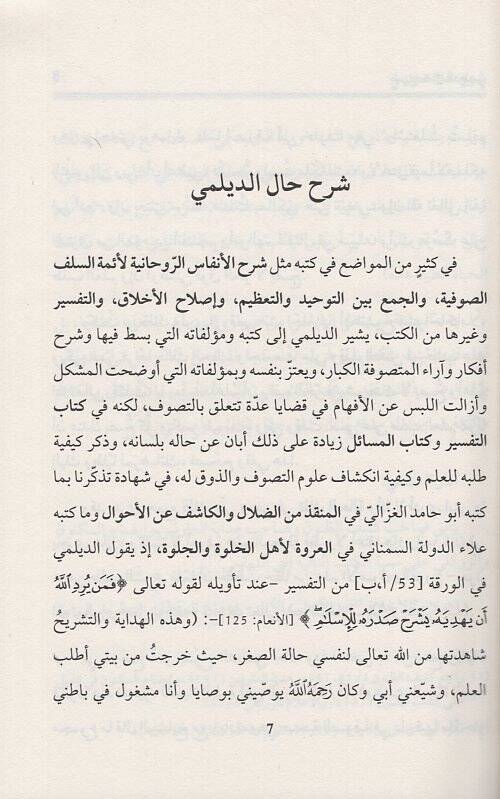 شرح حال الديلمي
في كثيرٍ من المواضع في كتبه مثل شرح الأنفاس الرّوحانية لأئمة السلف
الصوفية، والجمع بين التوحيد والتعظيم، وإصلاح الأخلاق، والتفسير
وغيرها من الكتب، يشير الديلمي إلى كتبه ومؤلفاته التي بسط فيها وشرح
أفكار وآراء المتصوفة الكبار، ويعتزّ بنفسه وبمؤلفاته التي أوضحت المشكل
وأزالت اللبس عن الأفهام في قضايا عدّة تتعلق بالتصوف، لكنه في كتاب
التفسير وكتاب المسائل زيادة على ذلك أبان عن حاله بلسانه، وذكر كيفية
طلبه للعلم وكيفية انكشاف علوم التصوف والذوق له، في شهادة تذكّرنا بما
كتبه أبو حامد الغزاليّ في المنقذ من الضلال والكاشف عن الأحوال وما كتبه
علاء الدولة السمناني في العروة لأهل الخلوة والجلوة، إذ يقول الديلمي
في الورقة [53/أ،ب] من التفسير -عند تأويله لقوله تعالى ﴿فَمَن يُرِدِ ٱللَّهُ
أَن يَهْدِيَهُۥ يَشْرَحْ صَدْرَهُۥ لِلْإِسْلَٰمِ ۖ﴾ [الأنعام: 125]-: (وهذه الهداية والتشريحُ
شاهدتها من الله تعالى لنفسي حالة الصغر، حيث خرجتُ من بيتي أطلب
العلم، وشيّعني أبي وكان رَحِمَهُ ٱللَّهُ يوصّيني بوصايا وأنا مشغول في باطني
7